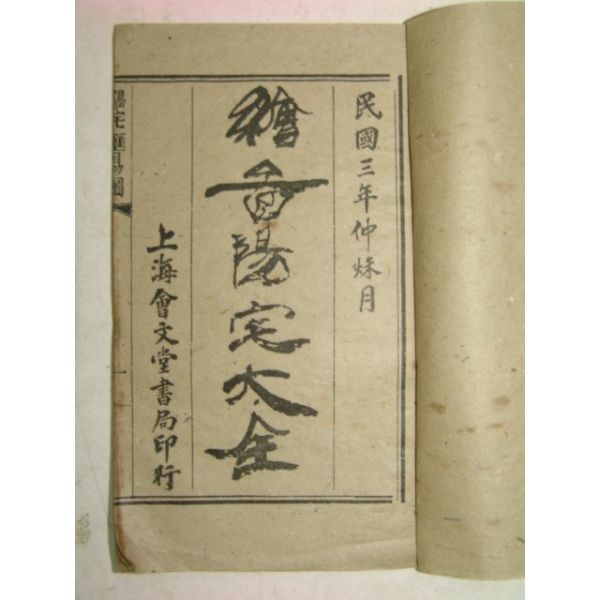 民國三年仲秌月
繪啚陽宅大全
上海會文堂書局印行
陽宅
一